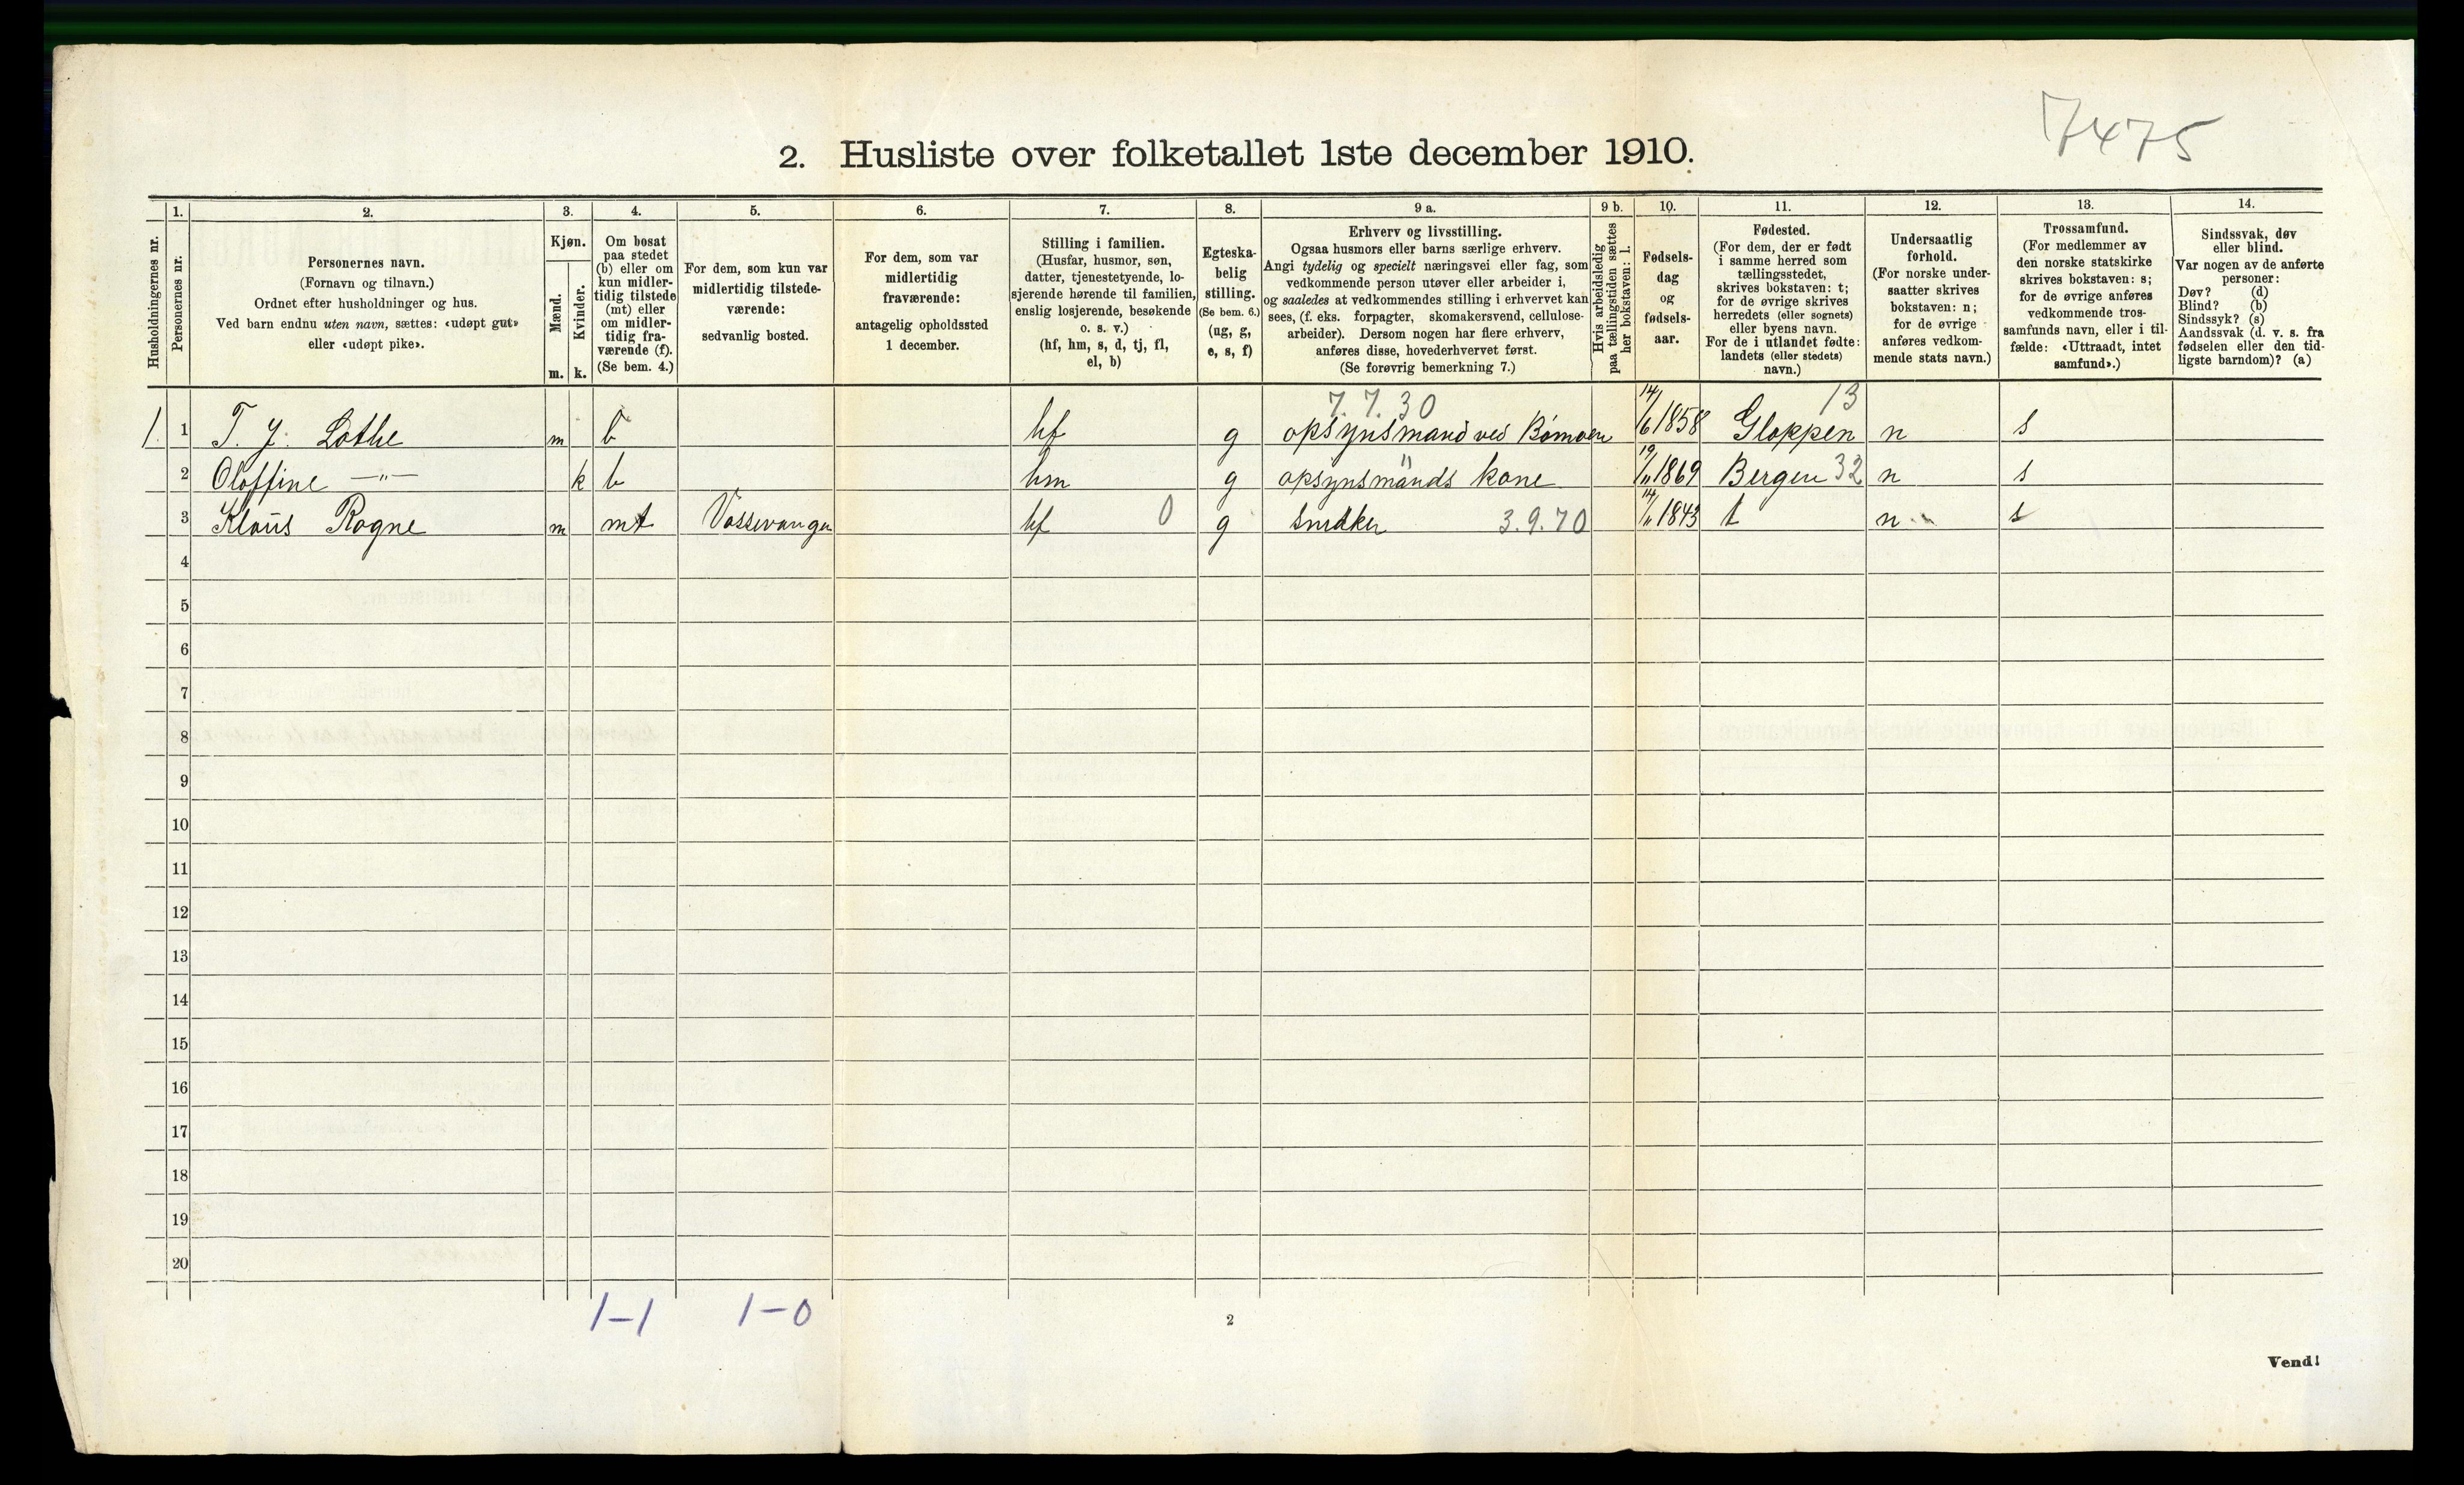 7475
2. Husliste over folketallet 1ste december 1910.
Husholdningernes nr.
1.
Personernes nr.
2.
Personernes navn.
(Fornavn og tilnavn.)
Ordnet efter husholdninger og hus.
Ved barn endnu uten navn, sættes: «udøpt gut»
eller «udøpt pike».
3.
Kjøn.
Mænd.
Kvinder.
m. k.
4.
Om bosat
paa stedet
(b) eller om
kun midler-
tidig tilstede
(mt) eller
om midler-
tidig fra-
værende (f).
(Se bem. 4.)
5.
For dem, som kun var
midlertidig tilstede-
værende:
sedvanlig bosted.
6.
For dem, som var
midlertidig
fraværende:
antagelig opholdssted
1 december.
7.
Stilling i familien.
(Husfar, husmor, søn,
datter, tjenestetyende, lo-
sjerende hørende til familien,
enslig losjerende, besøkende
o. s. v.)
(hf, hm, s, d, tj, fl,
el, b)
8.
Egteska-
belig
stilling.
(Se bem. 6.)
(ug, g,
e, s, f)
9 a.
Erhverv og livsstilling.
Ogsaa husmors eller barns særlige erhverv.
Angi tydelig og specielt næringsvei eller fag, som
vedkommende person utøver eller arbeider i,
og saaledes at vedkommendes stilling i erhvervet kan
sees, (f. eks. forpagter, skomakersvend, cellulose-
arbeider). Dersom nogen har flere erhverv,
anføres disse, hovederhvervet først.
(Se forøvrig bemerkning 7.)
9 b.
Hvis arbeidsledig
paa tællingstiden sættes
her bokstaven: l.
10.
Fødsels-
dag
og
fødsels-
aar.
11.
Fødested.
(For dem, der er født
i samme herred som
tællingsstedet,
skrives bokstaven: t;
for de øvrige skrives
herredets (eller sognets)
eller byens navn.
For de i utlandet fødte:
landets (eller stedets)
navn.)
12.
Undersaatlig
forhold.
(For norske under-
saatter skrives
bokstaven: n;
for de øvrige
anføres vedkom-
mende stats navn.)
13.
Trossamfund.
(For medlemmer av
den norske statskirke
skrives bokstaven: s;
for de øvrige anføres
vedkommende tros-
samfunds navn, eller i til-
fælde: «Uttraadt, intet
samfund».)
14.
Sindssvak, døv
eller blind.
Var nogen av de anførte
personer:
Døv? (d)
Blind? (b)
Sindssyk? (s)
Aandssvak (d. v. s. fra
fødselen eller den tid-
ligste barndom)? (a)
7.7.30 13
1. 1 T. J. Lothe m b hf g opsynsmand ved Bømoen 14/6 1858 Gloppen n s
2 Oloffine —"— k b hm g opsynsmands kone " 19/11 1869 Bergen 32 n s
3 Klaus Rogne m mt Vossevangen hf 0 g snedker 3.9.70 14/11 1843 t n s
4
5
6
7
8
9
10
11
12
13
14
15
16
17
18
19
20
1-1 1-0
2
Vend!